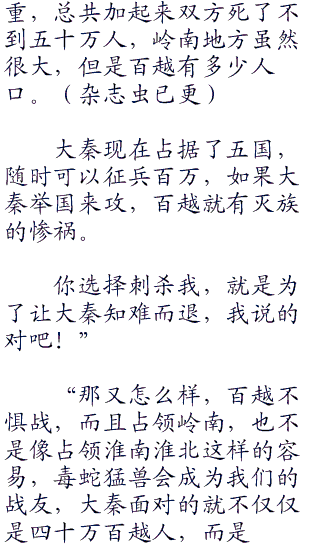 重，总共加起来双方死了不
到五十万人，岭南地方虽然
很大，但是百越有多少人
口。（杂志虫已更）
大秦现在占据了五国，
随时可以征兵百万，如果大
秦举国来攻，百越就有灭族
的惨祸。
你选择刺杀我，就是为
了让大秦知难而退，我说的
对吧！”
“那又怎么样，百越不
惧战，而且占领岭南，也不
是像占领淮南淮北这样的容
易，毒蛇猛兽会成为我们的
战友，大秦面对的就不仅仅
是四十万百越人，而是